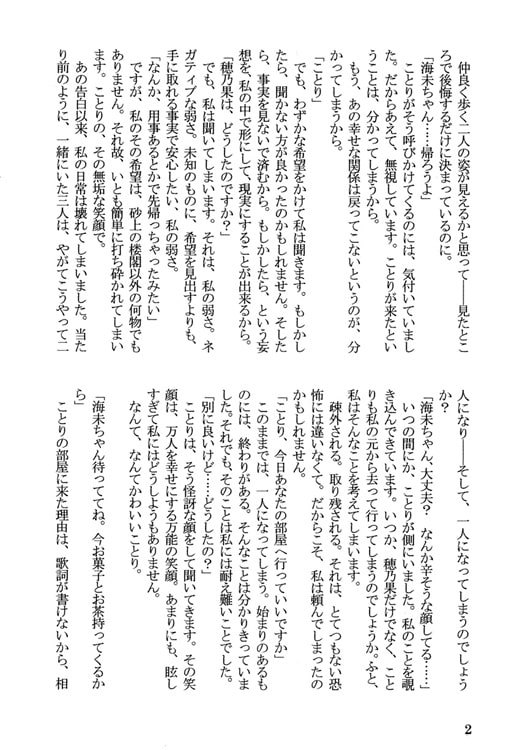 仲良く歩く二人の姿が見えるかと思って――見たとこ
ろで後悔するだけに決まっているのに。
「海未ちゃん……帰ろうよ」
ことりがそう呼びかけてくるのには、気付いていまし
た。だからあえて、無視しています。ことりが来たとい
うことは、分かってしまうから。
もう、あの幸せな関係は戻ってこないというのが、分
かってしまうから。
「ことり」
でも、わずかな希望をかけて私は聞きます。もしかし
たら、聞かない方が良かったのかもしれません。そした
ら、事実を見ないで済むから。もしかしたら、という妄
想を、私の中で形にして、現実にすることが出来るから。
「穂乃果は、どうしたのですか？」
でも、私は聞いてしまいます。それは、私の弱さ。ネ
ガティブな弱さ。未知のものに、希望を見出すよりも、
手に取れる事実で安心したい、私の弱さ。
「なんか、用事あるとかで先帰っちゃったみたい」
ですが、私のその希望は、砂上の楼閣以外の何物でも
ありません。それ故、いとも簡単に打ち砕かれてしまい
ます。ことりの、その無垢な笑顔で。
あの告白以来、私の日常は壊れてしまいました。当た
り前のように、一緒にいた三人は、やがてこうやって二
人になり――そして、一人になってしまうのでしょう
か？
「海未ちゃん、大丈夫？　なんか辛そうな顔してる……」
いつの間にか、ことりが側にいました。私のことを覗
き込んできています。いつか、穂乃果だけでなく、こと
りも私の元から去って行ってしまうのでしょうか。ふと、
私はそんなことを考えてしまいます。
疎外される。取り残される。それは、とてつもない恐
怖には違いなくて。だからこそ、私は頼んでしまったの
かもしれません。
「ことり、今日あなたの部屋へ行っていいですか」
このままでは、一人になってしまう。始まりのあるも
のには、終わりがある。そんなことは分かりきっていま
した。それでも、そのことは私には耐え難いことでした。
「別に良いけど……どうしたの？」
ことりは、そう怪訝な顔をして聞いてきます。その笑
顔は、万人を幸せにする万能の笑顔。あまりにも、眩し
すぎて私にはどうしようもありません。
なんて、なんてかわいいことり。
「海未ちゃん待っててね。今お菓子とお茶持ってくるか
ら」
ことりの部屋に来た理由は、歌詞が書けないから、相
2